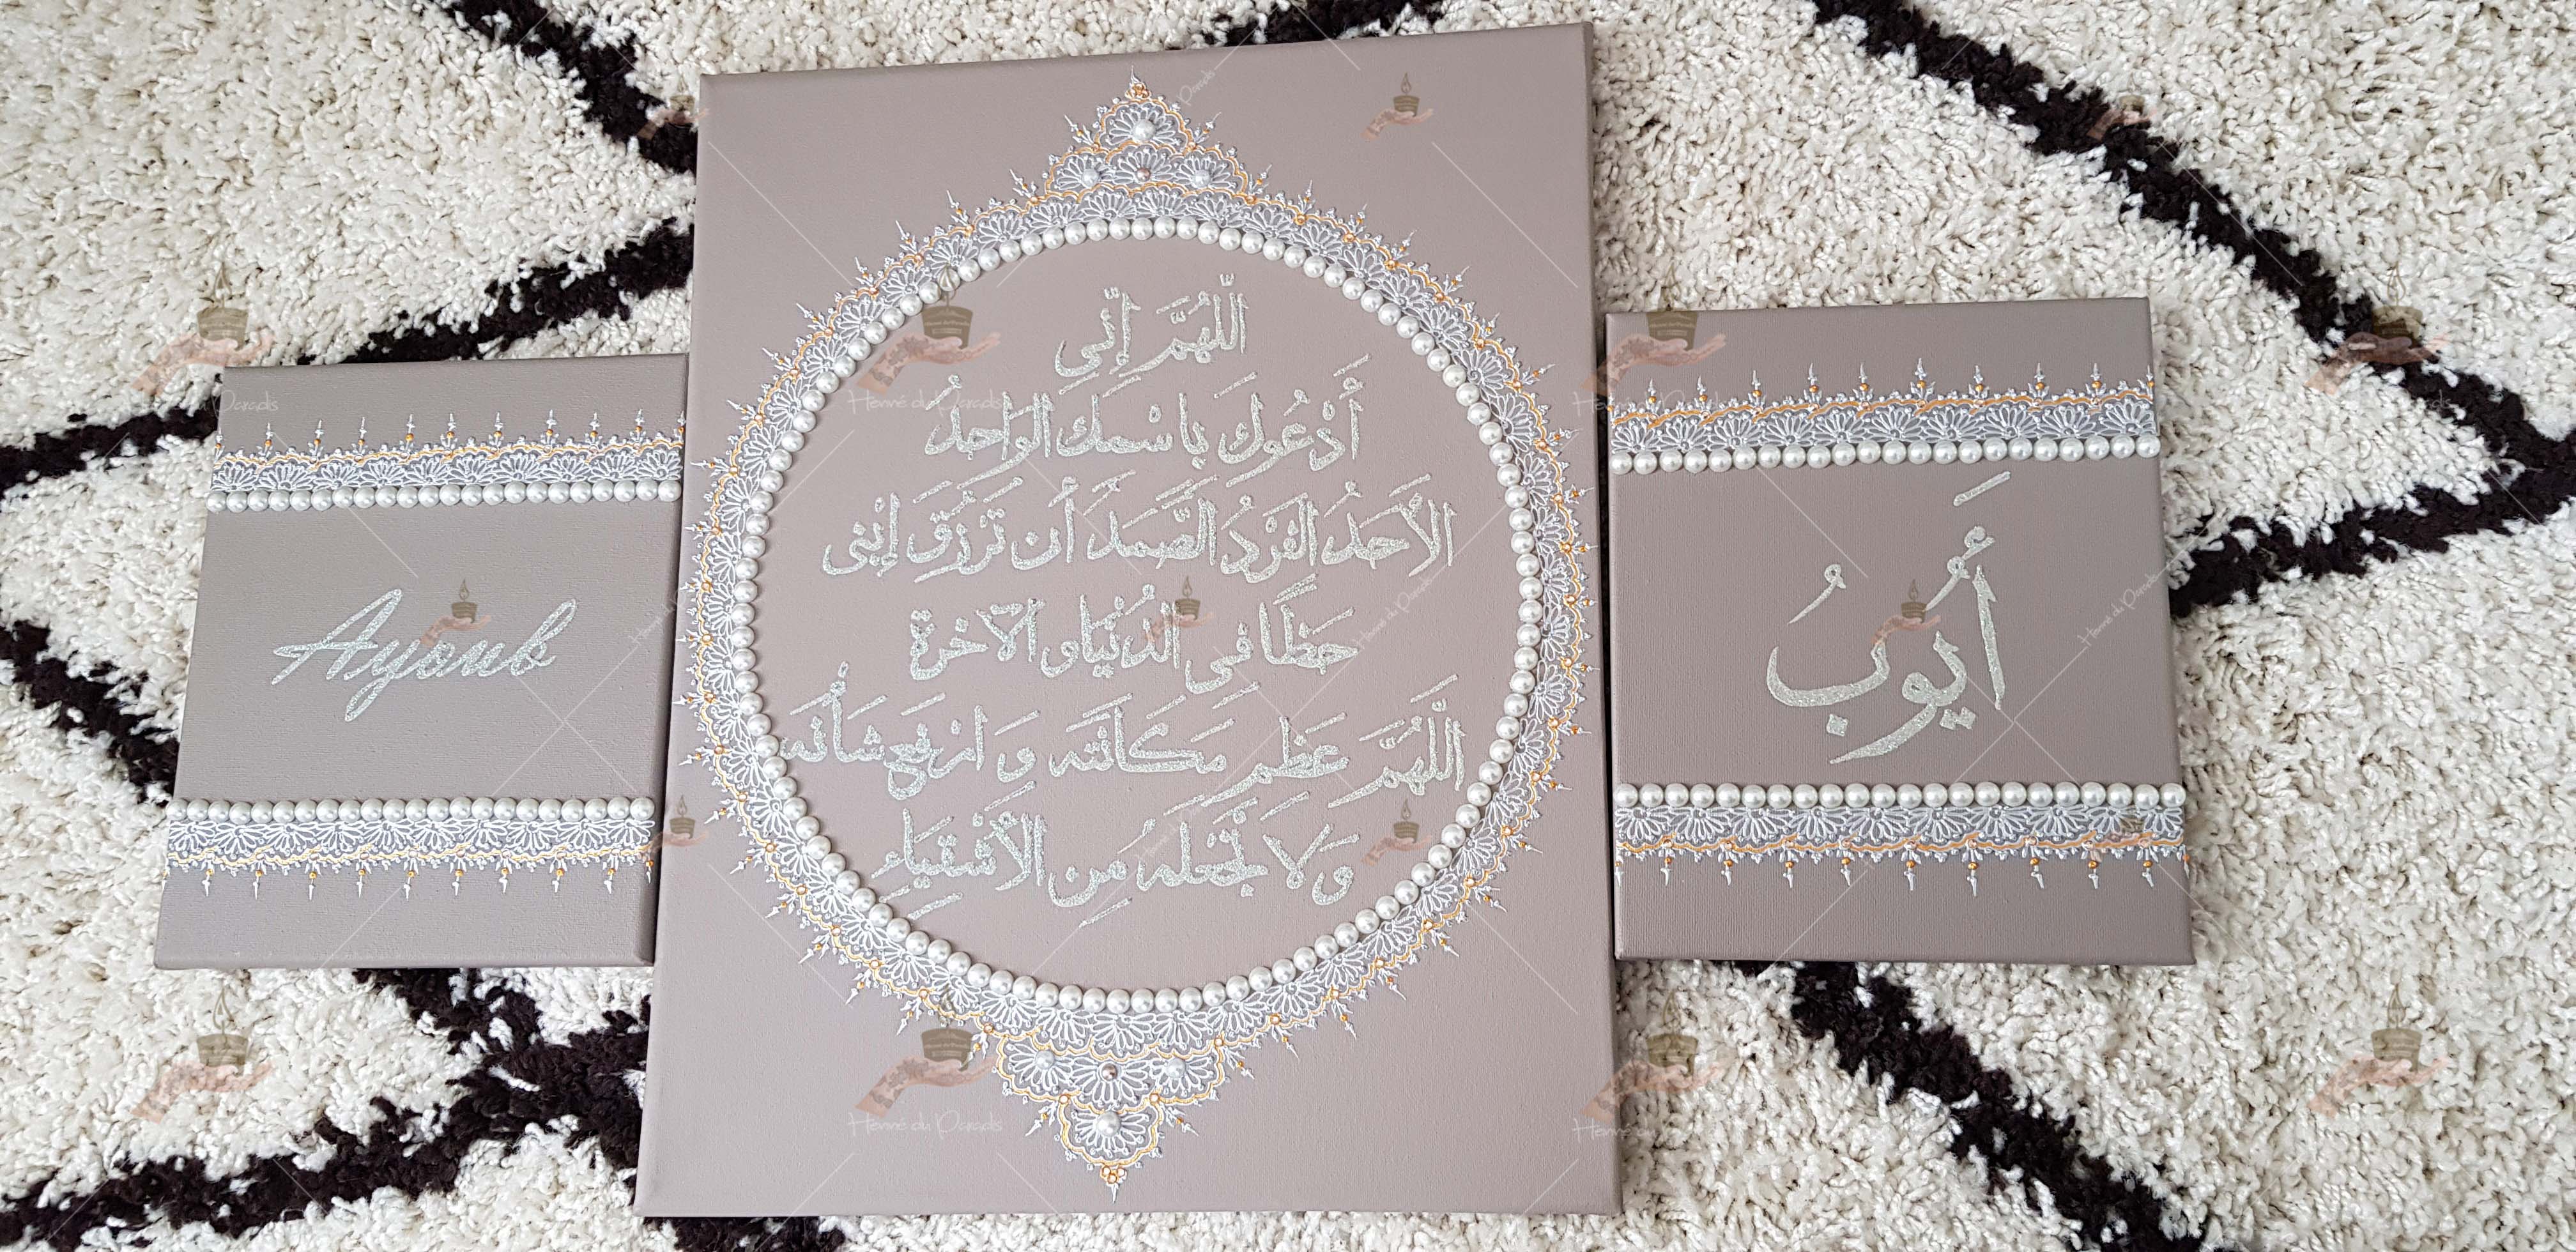 Ayoub
اللَّهُمَّ إِنِّي
أَدْعُوكَ بِاسْمِكَ الوَاحِدُ
الأَحَدُ الفَرْدُ الصَّمَدَ أَن تَرْزَقَ إِبْنِي
حَظًا فِي الدُنْيَا وَ الآخِرَة
اللَّهُمَّ عَظِم مَكَانَتَه وَ ارْفَع شَأْنَه
وَ لَا تَجْعَلَهُ مِن الأَشْقِيَاءِ
أَيُّوبُ
Henné du Paradis